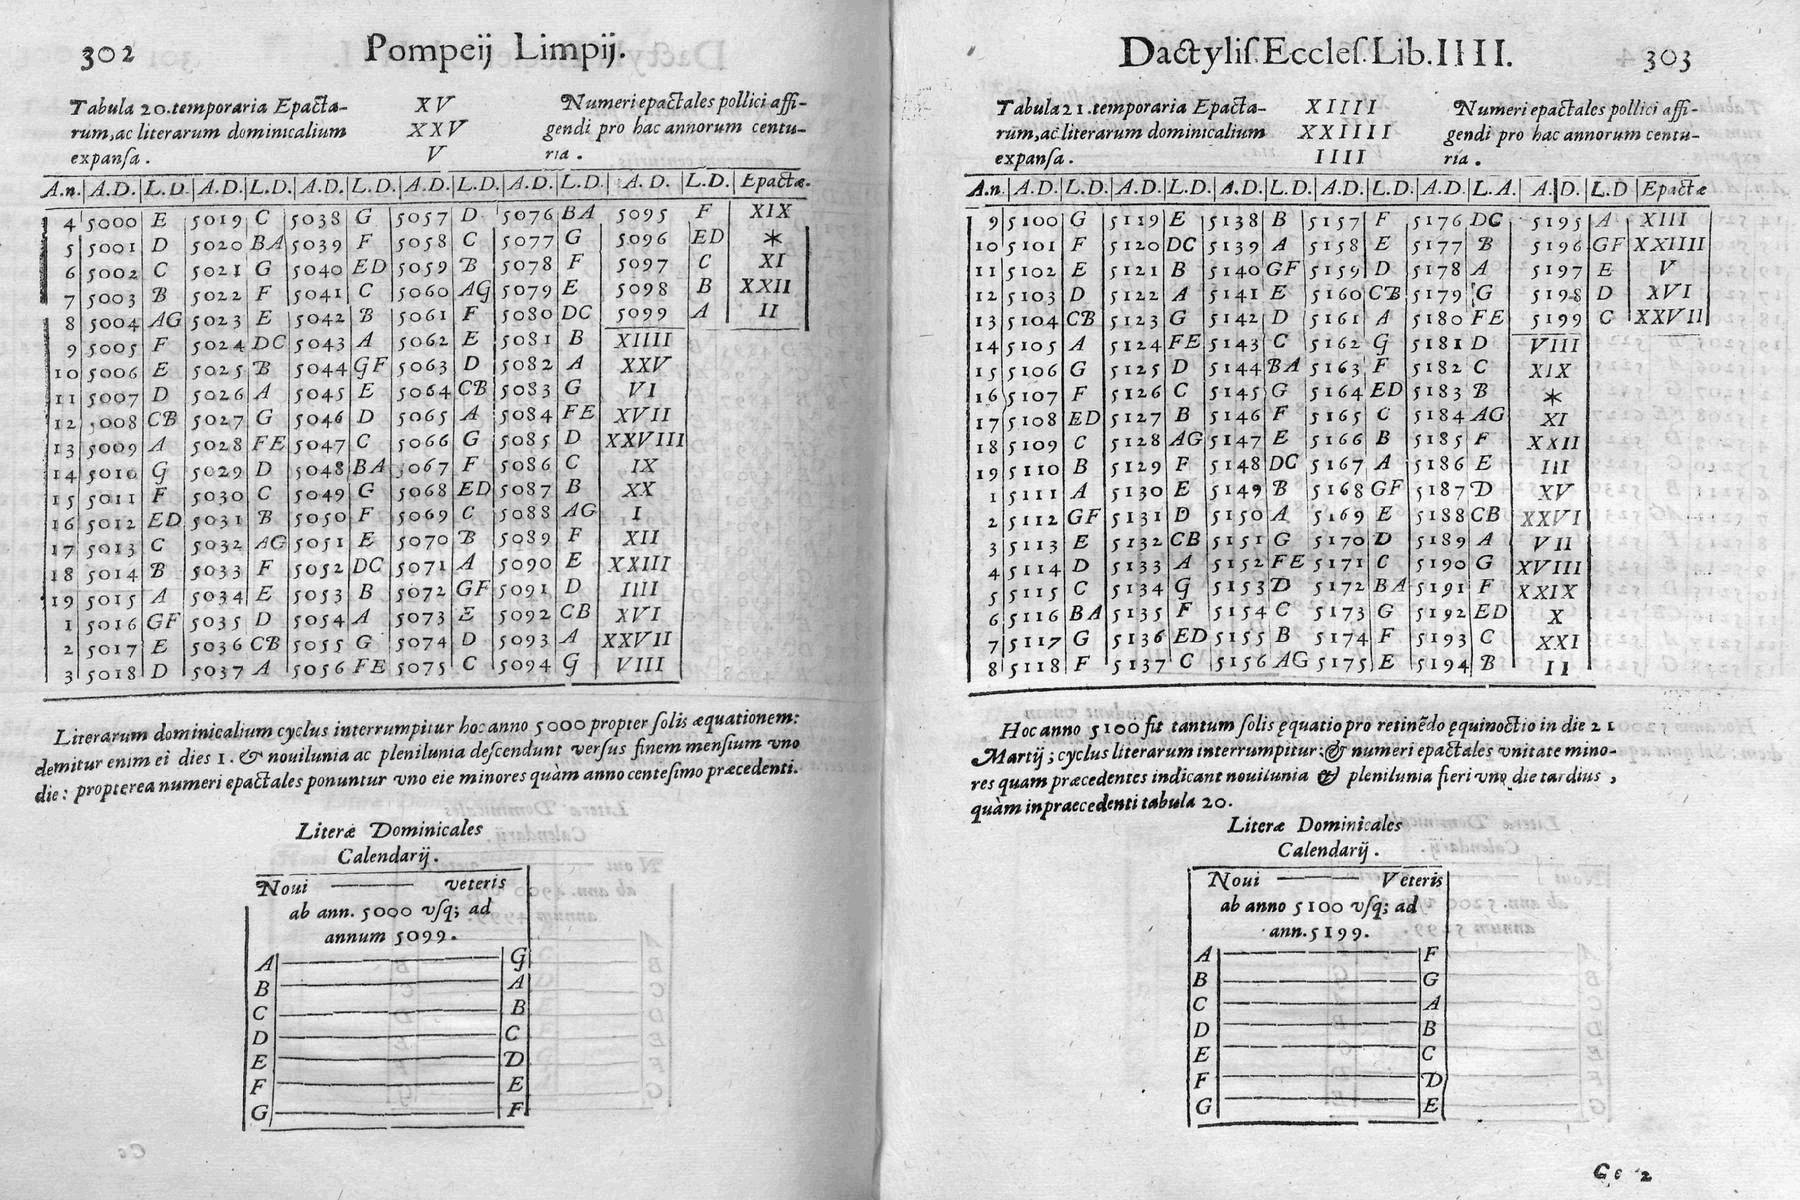 302 Pompeij Limpij.
Tabula 20. temporaria Epacta- XV Numeri epactales pollici affi-
rum, ac literarum dominicalium XXV gendi pro hac annorum centu-
expansa. V ria.
A.n. A.D. L.D. A.D. L.D. A.D. L.D. A.D. L.D. A.D. L.D. A.D. L.D. Epactæ.
4 5000 E 5019 C 5038 G 5057 D 5076 BA 5095 F XIX
5 5001 D 5020 BA 5039 F 5058 C 5077 G 5096 ED *
6 5002 C 5021 G 5040 ED 5059 B 5078 F 5097 C XI
7 5003 B 5022 F 5041 C 5060 AG 5079 E 5098 B XXII
8 5004 AG 5023 E 5042 B 5061 F 5080 DC 5099 A II
9 5005 F 5024 DC 5043 A 5062 E 5081 B XIIII
10 5006 E 5025 B 5044 GF 5063 D 5082 A XXV
11 5007 D 5026 A 5045 E 5064 CB 5083 G VI
12 5008 CB 5027 G 5046 D 5065 A 5084 FE XVII
13 5009 A 5028 FE 5047 C 5066 G 5085 D XXVIII
14 5010 G 5029 D 5048 BA 5067 F 5086 C IX
15 5011 F 5030 C 5049 G 5068 ED 5087 B XX
16 5012 ED 5031 B 5050 F 5069 C 5088 AG I
17 5013 C 5032 AG 5051 E 5070 B 5089 F XII
18 5014 B 5033 F 5052 DC 5071 A 5090 E XXIII
19 5015 A 5034 E 5053 B 5072 GF 5091 D IIII
1 5016 GF 5035 D 5054 A 5073 E 5092 CB XVI
2 5017 E 5036 CB 5055 G 5074 D 5093 A XXVII
3 5018 D 5037 A 5056 FE 5075 C 5094 G VIII
Literarum dominicalium cyclus interrumpitur hoc anno 5000 propter solis æquationem:
demitur enim ei dies 1. & nouilunia ac plenilunia descendunt versus finem mensium vno
die: propterea numeri epactales ponuntur vno eie minores quàm anno centesimo præcedenti.
Literæ Dominicales
Calendarij.
Noui veteris
ab ann. 5000 vsq; ad
annum 5099.
A G
B A
C B
D C
E D
F E
G F
Dactylis. Eccles. Lib. IIII. 303
Tabula 21. temporaria Epacta- XIIII Numeri epactales pollici affi-
rum, ac literarum dominicalium XXIIII gendi pro hac annorum centu-
expansa. IIII ria.
A.n. A.D. L.D. A.D. L.D. A.D. L.D. A.D. L.D. A.D. L.A. A.D. L.D Epactæ
9 5100 G 5119 E 5138 B 5157 F 5176 DC 5195 A XIII
10 5101 F 5120 DC 5139 A 5158 E 5177 B 5196 GF XXIIII
11 5102 E 5121 B 5140 GF 5159 D 5178 A 5197 E V
12 5103 D 5122 A 5141 E 5160 CB 5179 G 5198 D XVI
13 5104 CB 5123 G 5142 D 5161 A 5180 FE 5199 C XXVII
14 5105 A 5124 FE 5143 C 5162 G 5181 D VIII
15 5106 G 5125 D 5144 BA 5163 F 5182 C XIX
16 5107 F 5126 C 5145 G 5164 ED 5183 B *
17 5108 ED 5127 B 5146 F 5165 C 5184 AG XI
18 5109 C 5128 AG 5147 E 5166 B 5185 F XXII
19 5110 B 5129 F 5148 DC 5167 A 5186 E III
1 5111 A 5130 E 5149 B 5168 GF 5187 D XV
2 5112 GF 5131 D 5150 A 5169 E 5188 CB XXVI
3 5113 E 5132 CB 5151 G 5170 D 5189 A VII
4 5114 D 5133 A 5152 FE 5171 C 5190 G XVIII
5 5115 C 5134 G 5153 D 5172 BA 5191 F XXIX
6 5116 BA 5135 F 5154 C 5173 G 5192 ED X
7 5117 G 5136 ED 5155 B 5174 F 5193 C XXI
8 5118 F 5137 C 5156 AG 5175 E 5194 B II
Hoc anno 5100 fit tantum solis ęquatio pro retinẽdo ęquinoctio in die 21
Martij; cyclus literarum interrumpitur: & numeri epactales vnitate mino-
res quam præcedentes indicant nouilunia & plenilunia fieri vno die tardius,
quàm inpraecedenti tabula 20.
Literæ Dominicales
Calendarij.
Noui Veteris
ab anno 5100 vsq; ad
ann. 5199.
A F
B G
C A
D B
E C
F D
G E
Cc 2